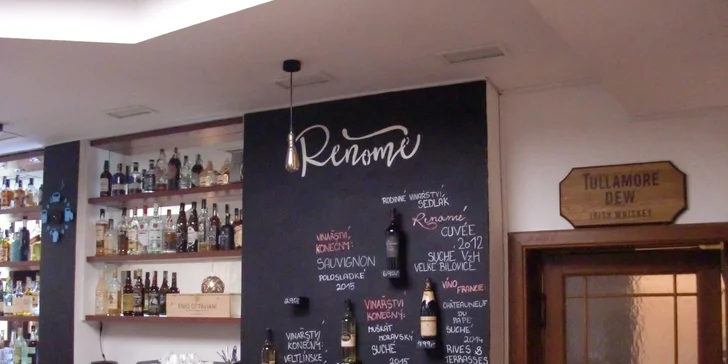 Renomé
RODINNÉ VINAŘSTVÍ
SEDLÁK
Renomé
CUVÉE
2012
SUCHÉ VZH
VELKÉ BÍLOVICE
VINAŘSTVÍ
KONEČNÝ:
SAUVIGNON
POLOSLADKÉ
2015
VÍNO
FRANCIE
CHÂTEAUNEUF
DU
PAPE
SUCHÉ
2014
RIVES &
TERRASSES
VINAŘSTVÍ
KONEČNÝ:
MUŠKÁT
MORAVSKÝ
SUCHÉ
2015
VINAŘSTVÍ
KONEČNÝ:
VELTLÍNSKÉ
TULLAMORE
DEW
IRISH WHISKEY